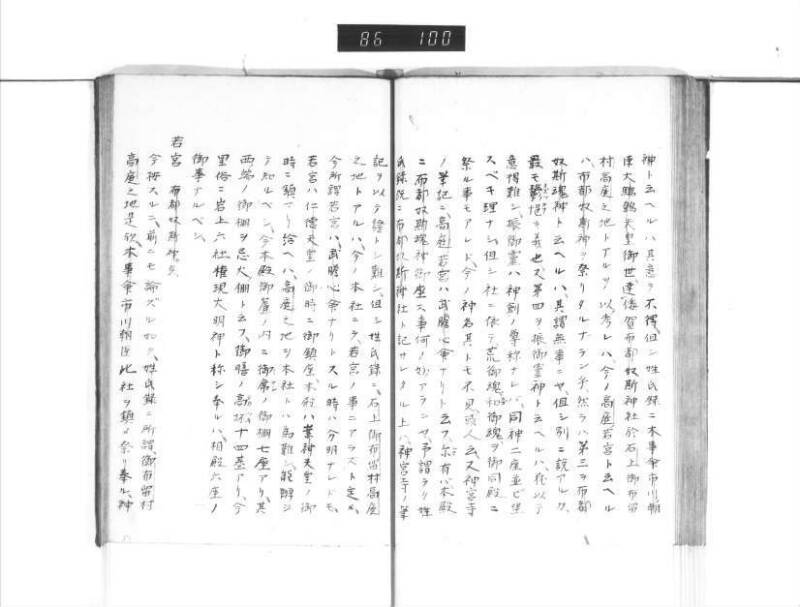 86 100
神ト云ヘルハ其意ヲ不得、但シ姓氏録ニ木事命市川朝
臣大鷦鷯天皇御世達倭賀布都奴斯神社於石上御布留
村高庭之地トアルヲ以考レハ、今ノ高庭若宮ト云ヘル
ハ布都奴斯神ヲ祭リタルナラン乎、然ラハ第三ヲ布都
奴斯魂神ト云ヘルハ、其謂無事ニヤ、但シ別ニ説アルカ、
最モ鬱悒キ義也、又第四ヲ振御霊神ト云ヘルハ、我以テ
意得難シ、振御霊ハ神剣ノ尊称ナレハ、同神二座並ビ坐
スベキ理ナシ、但シ社ニ依テ荒御魂和御魂ヲ御同殿ニ
祭ル事モアレド、今ノ神名其トモ不見、或人云、又神宮寺
ノ筆記ニ、高庭若宮ハ武膽心命ナリト云フ、有ハ本殿
ニ布都奴斯魂神御座ス事何ノ妨アランヤ、予謂ラク姓
氏録既ニ布都奴斯神社ト記サレタル上ハ、神宮寺ノ筆
記ヲ以テ證トシ難シ、但シ姓氏録ニ、石上御布留村高庭
之地トアルハ、今ノ本社ニテ、若宮ノ事ニアラスト定メ、
今所謂若宮ハ、武膽心命ナリトスル時ハ分明ナレドモ、
若宮ハ仁徳天皇ノ御時ニ御鎮座、本殿ハ崇神天皇ノ御
時ニ鎮マリ給ヘハ、高庭之地ヲ本社トハ為難シ、能解シ
テ知ルベシ、今本殿御簾ノ内ニ御席ノ御棚七座アリ、其
西端ノ御棚ヲ忌火棚ト云フ、御膳ノ高坏十四基アリ、今
里俗ニ岩上六社権現大明神ト称シ奉ルハ、相殿六座ノ
御事アルベシ、
若宮 布都奴斯神矣
今按スルニ、前ニモ論ズル如ク、姓氏録ニ所謂、御布留村
高庭之地是歟、木事命市川朝臣此社ヲ鎮メ祭リ奉ル、神